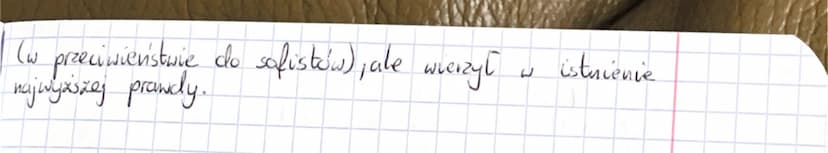 (w przeciwieństwie do sofistów), ale wierzył w istnienie
najwyższej prawdy.